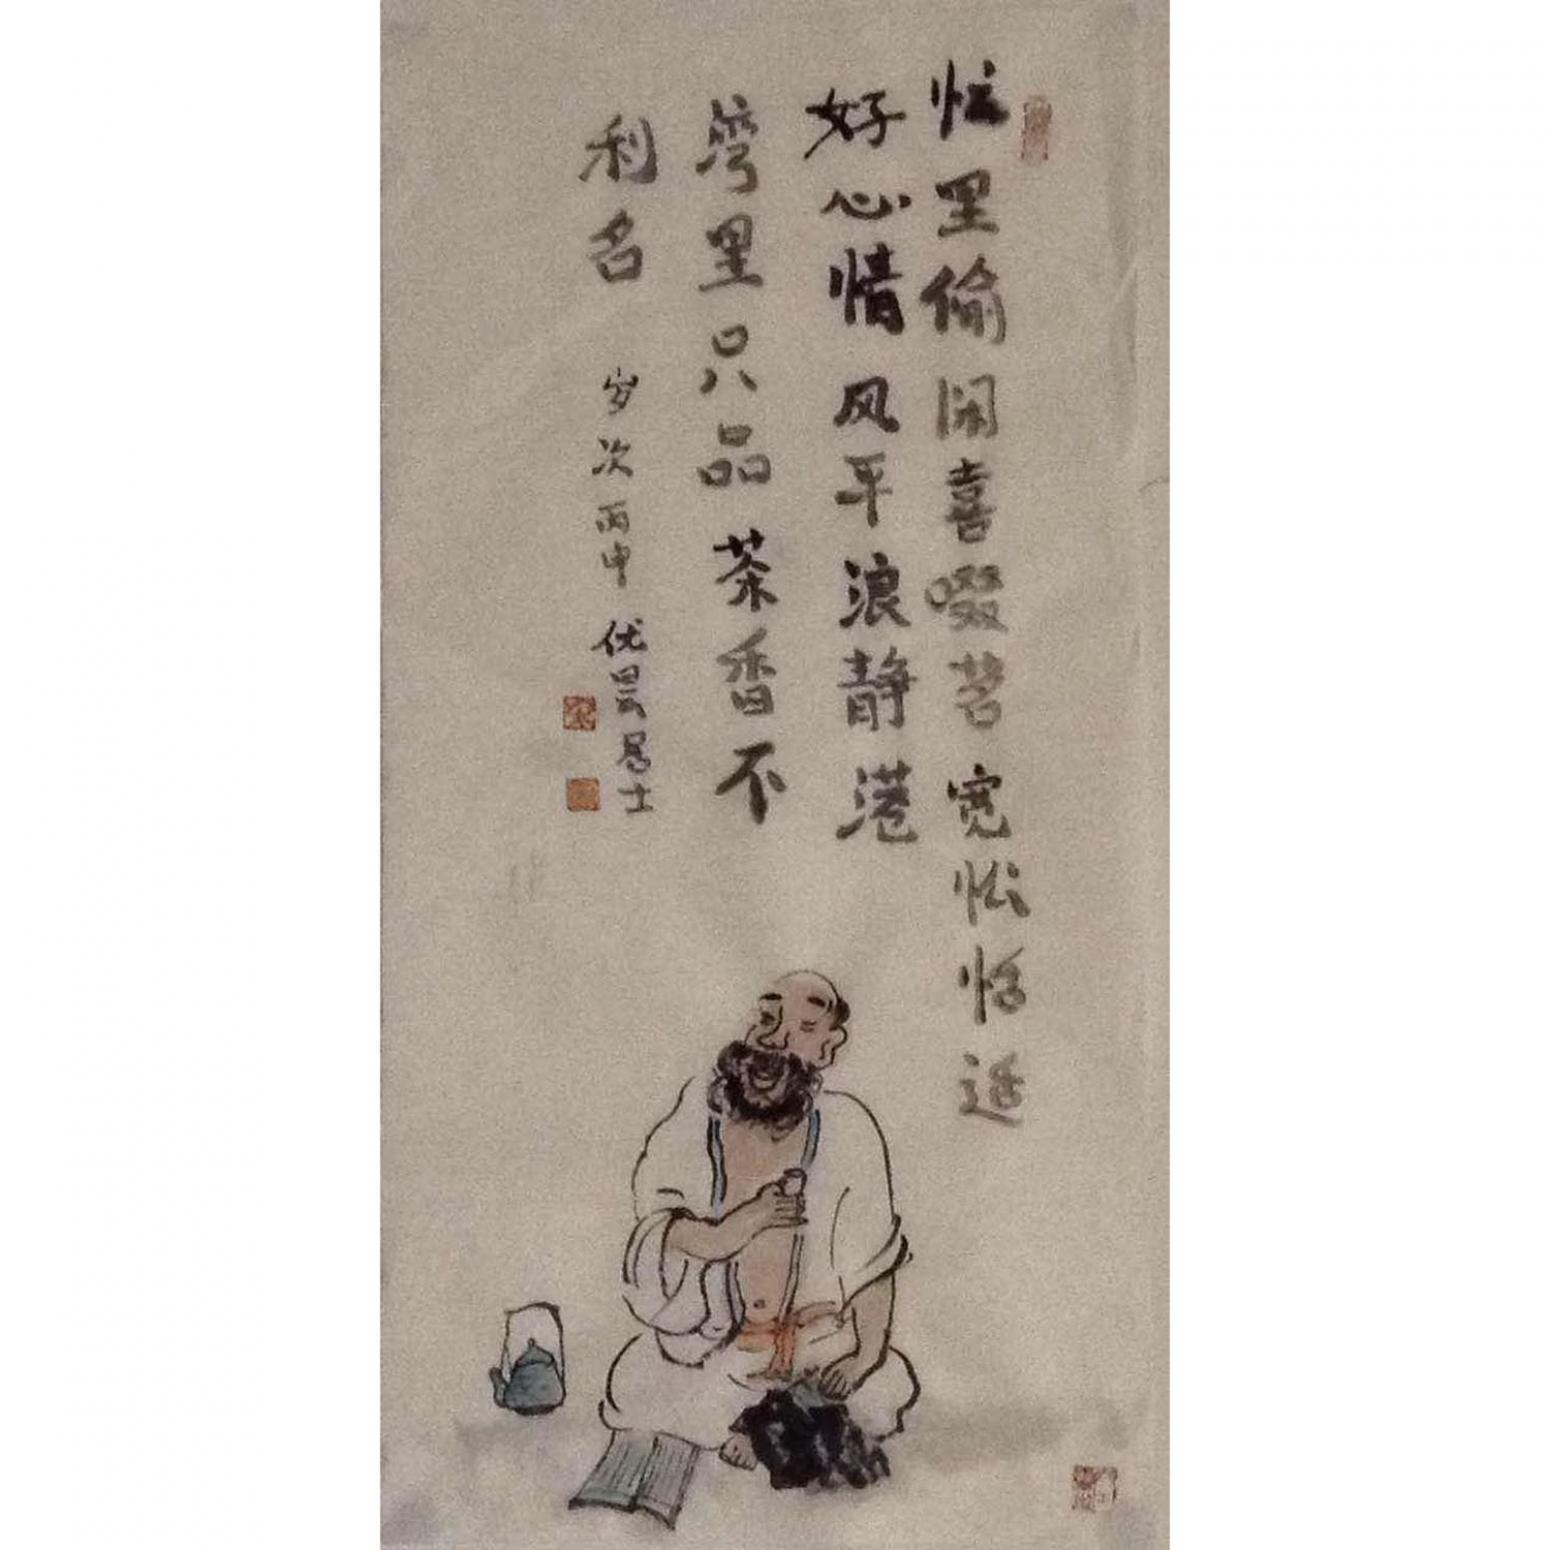 忙里偷闲喜啜茗宽忪恬适
好心情风平浪静港
湾里只品茶香不
利名 岁次丙申优昙居士